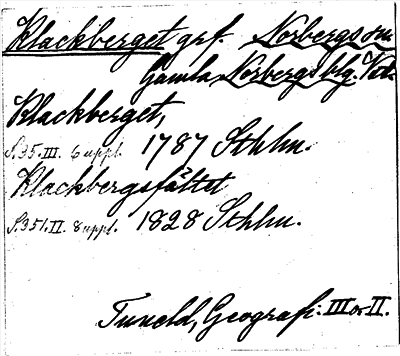 Klackberget grf. Norbergs sn
Gamla Norbergs blg. Vstm.
Klackberget,
S. 35. III. 6 uppl. 1787 Sthlm.
Klackbergsfältet
S. 351. II. 8 uppl. 1828 Sthlm.
Tuneld, Geografi. III o. II.